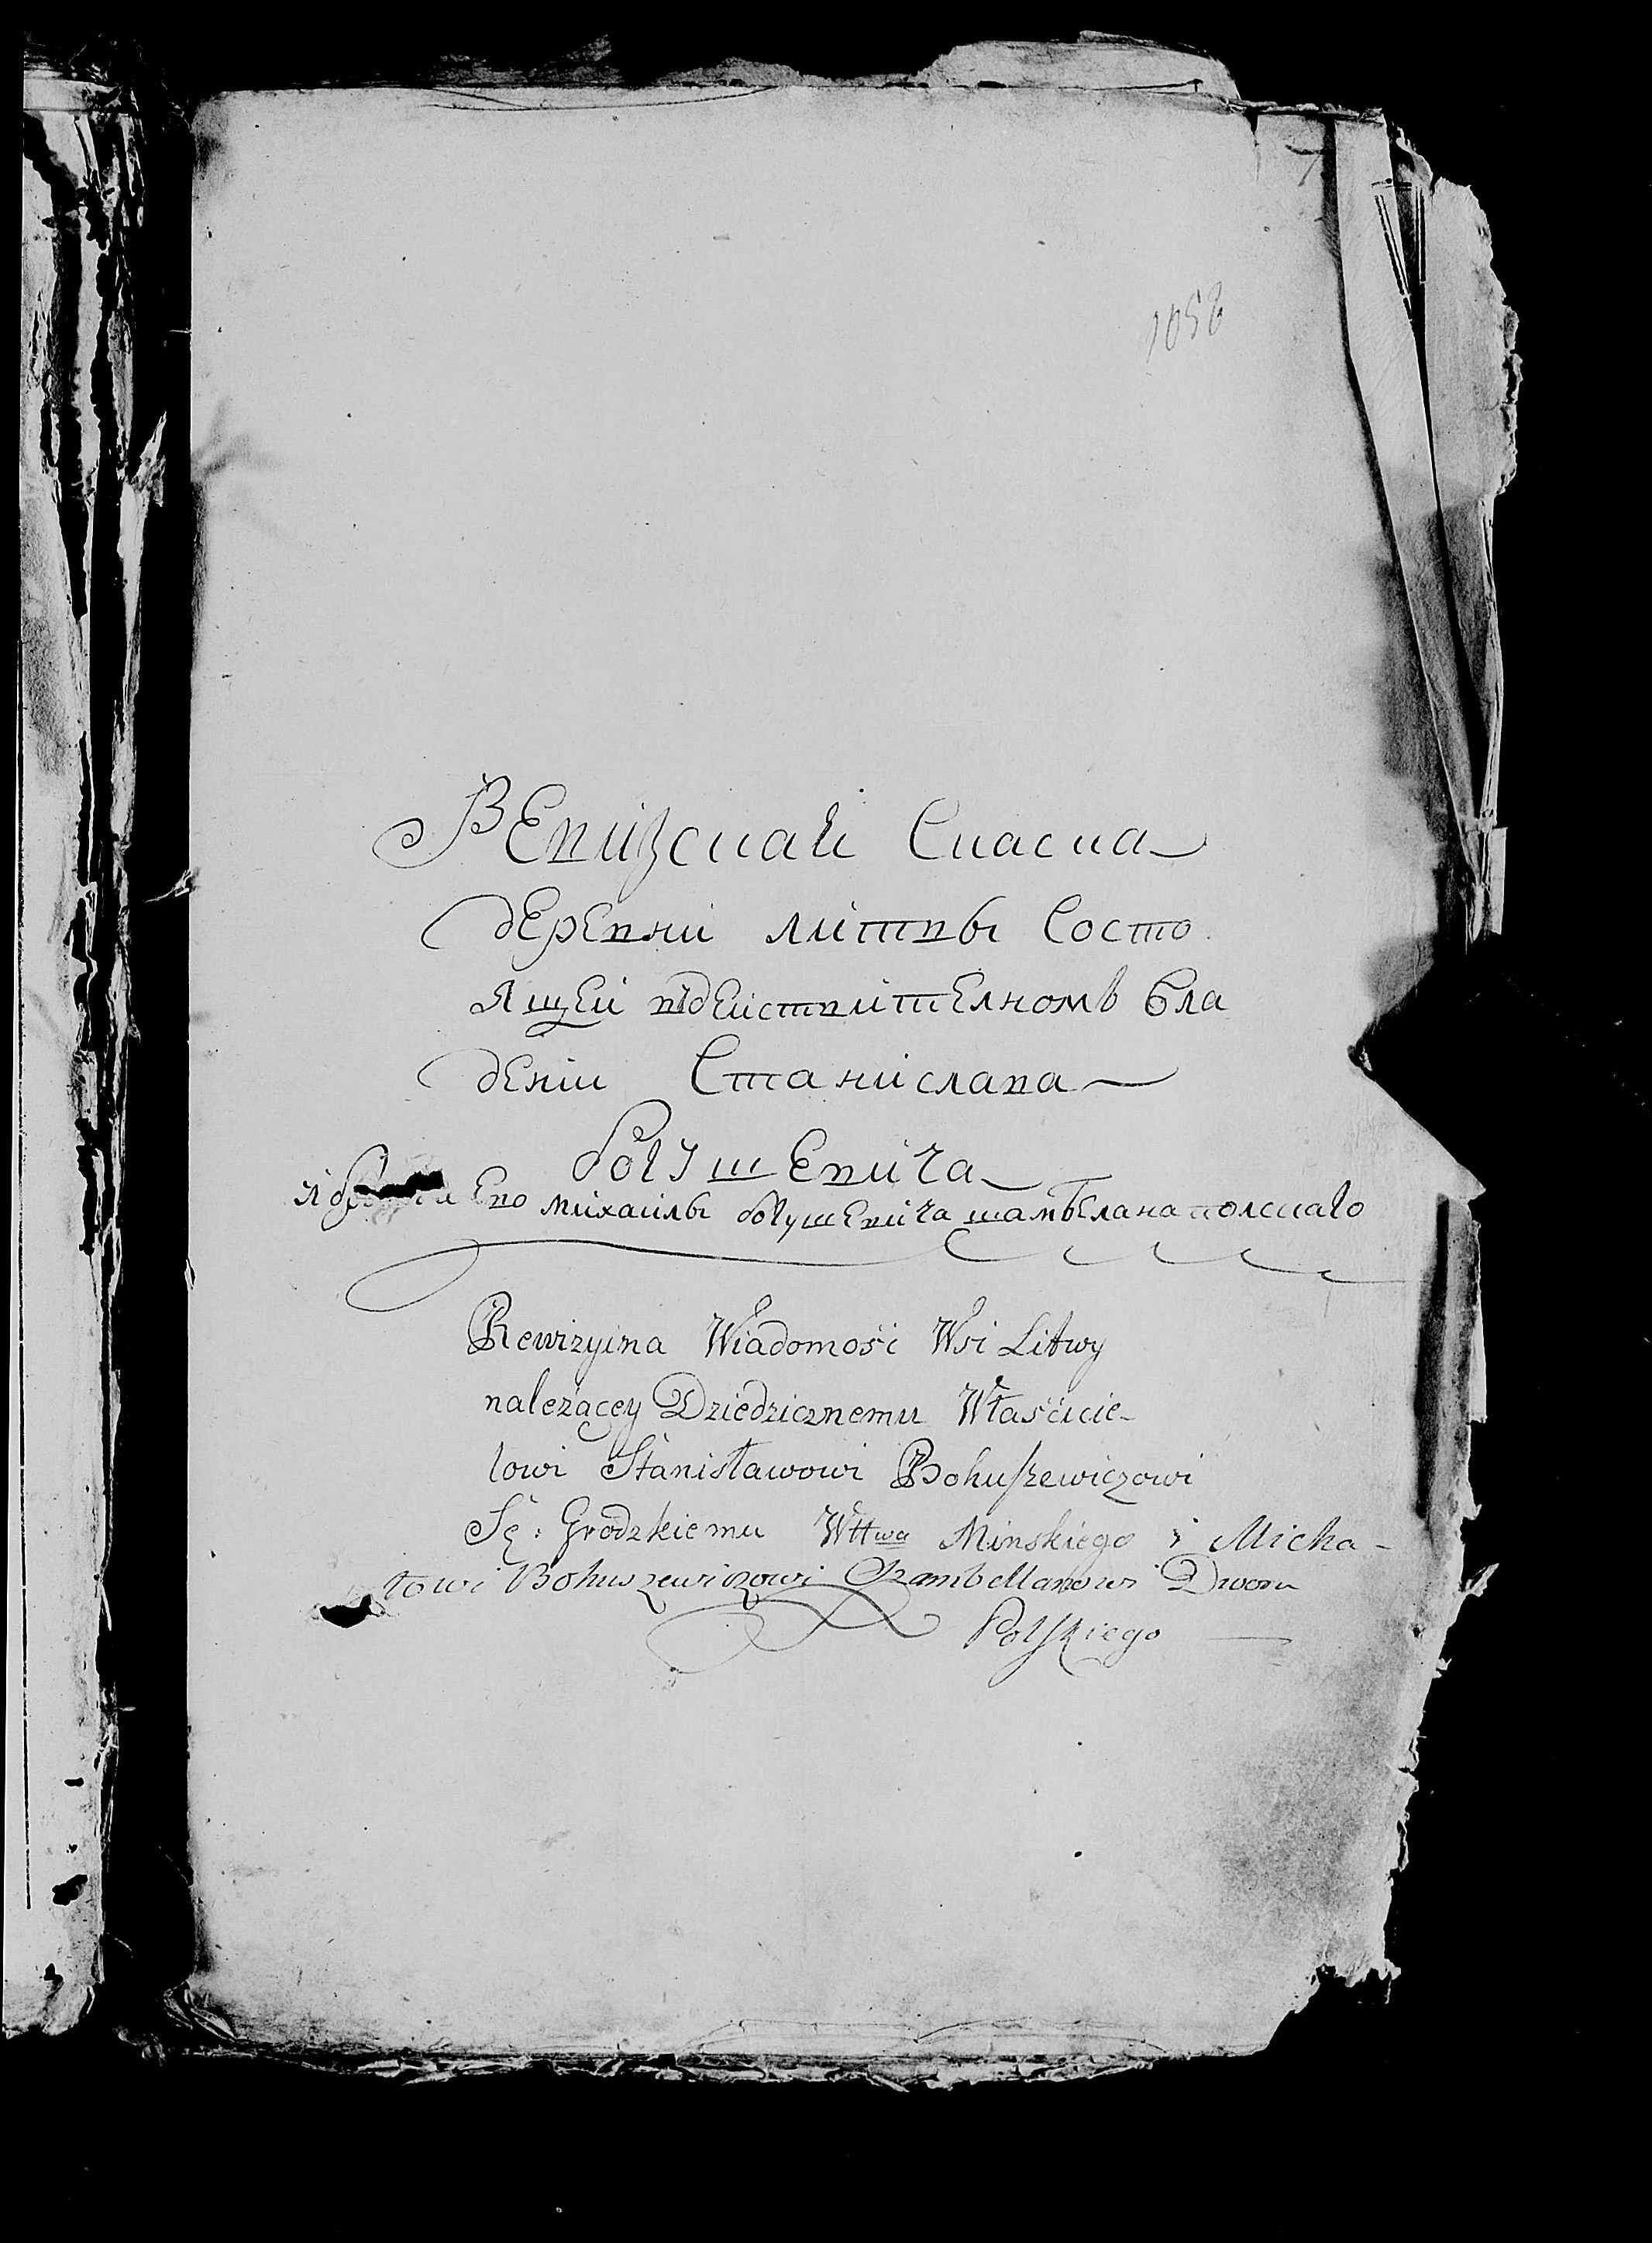 1056
Ревизская Сказка
деревни литвы Состо
ящей вдействителномъ вла
дении Станислава
богушевича
его михаилы богушевича шамбелана полскаго
Rewizyina Wiadomość Wsi Litwy
należącey Dziedzicznemu Właścicie-
lowi Stanisławowi Bohuszewiczowi
Sę: Grodzkiemu Wttwa Minskiego i Micha-
łowi Bohuszewiczowi Szambellanowi Dworu
Polskiego